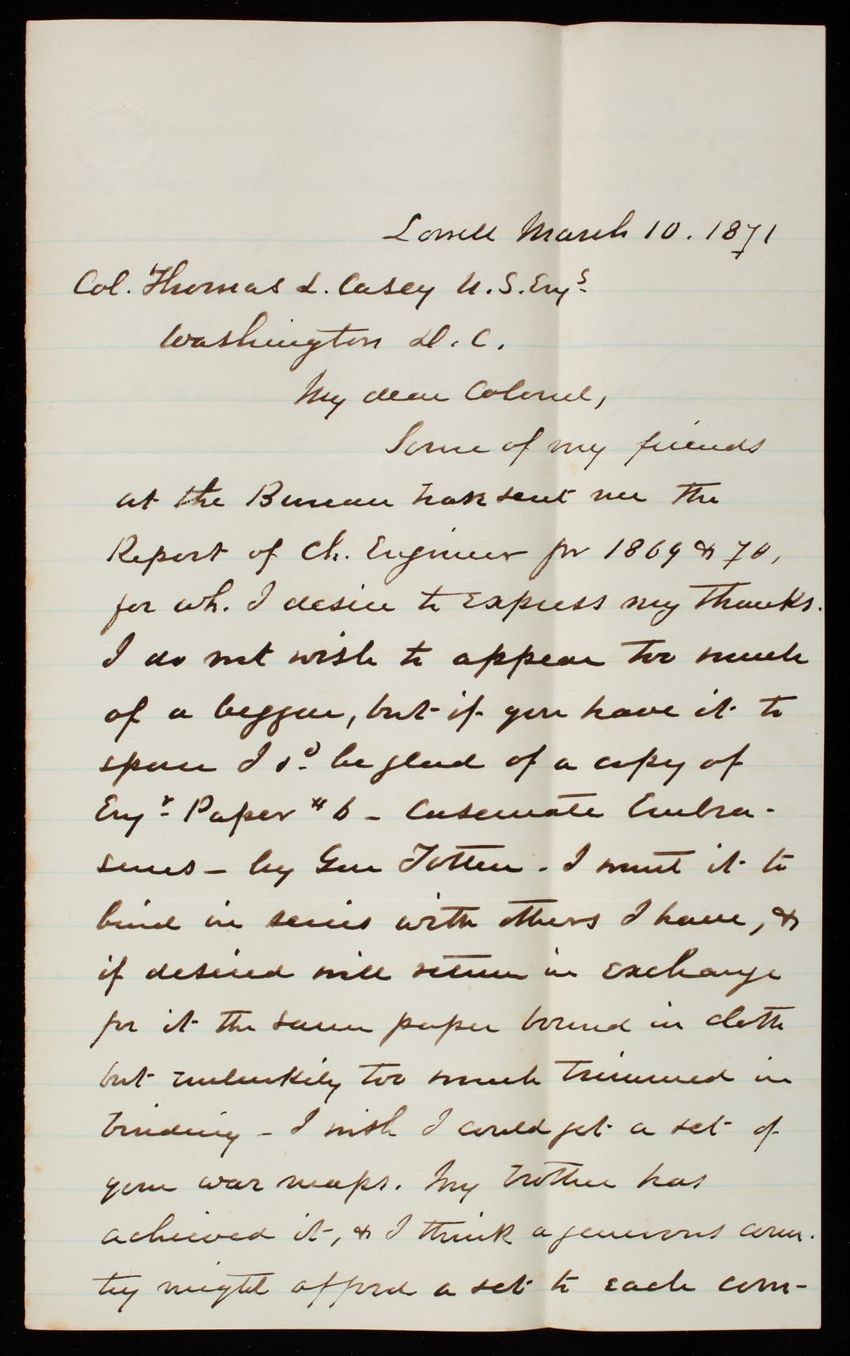 Lowell March 10. 1871
Col. Thomas L. Casey U.S. Engs.
Washington D.C.
My dear Colonel,
Some of my friends
at the Bureau has sent me the
Report of Ch. Engineer for 1869 & 70,
for wh. I desire to express my thanks.
I do not wish to appear too much
of a beggar, but if you have it to
spare I sd. be glad of a copy of
Engr. Paper #6 - Casemate Embra-
sures - by Gen Totten. I want it to
bind in series with others I have, &
if desired will return in exchange
for it the same paper bound in cloth
but unluckily too much trimmed in
binding - I wish I could get a set of
your war maps. My brother has
achieved it, & I think a generous coun-
try might afford a set to each com-